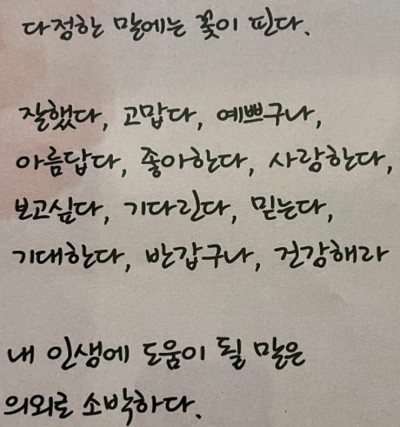 다정한 말에는 꽃이 핀다.
잘했다, 고맙다, 예쁘구나,
아름답다, 좋아한다, 사랑한다,
보고싶다, 기다린다, 믿는다,
기대한다, 반갑구나, 건강해라
내 인생에 도움이 될 말은
의외로 소박하다.